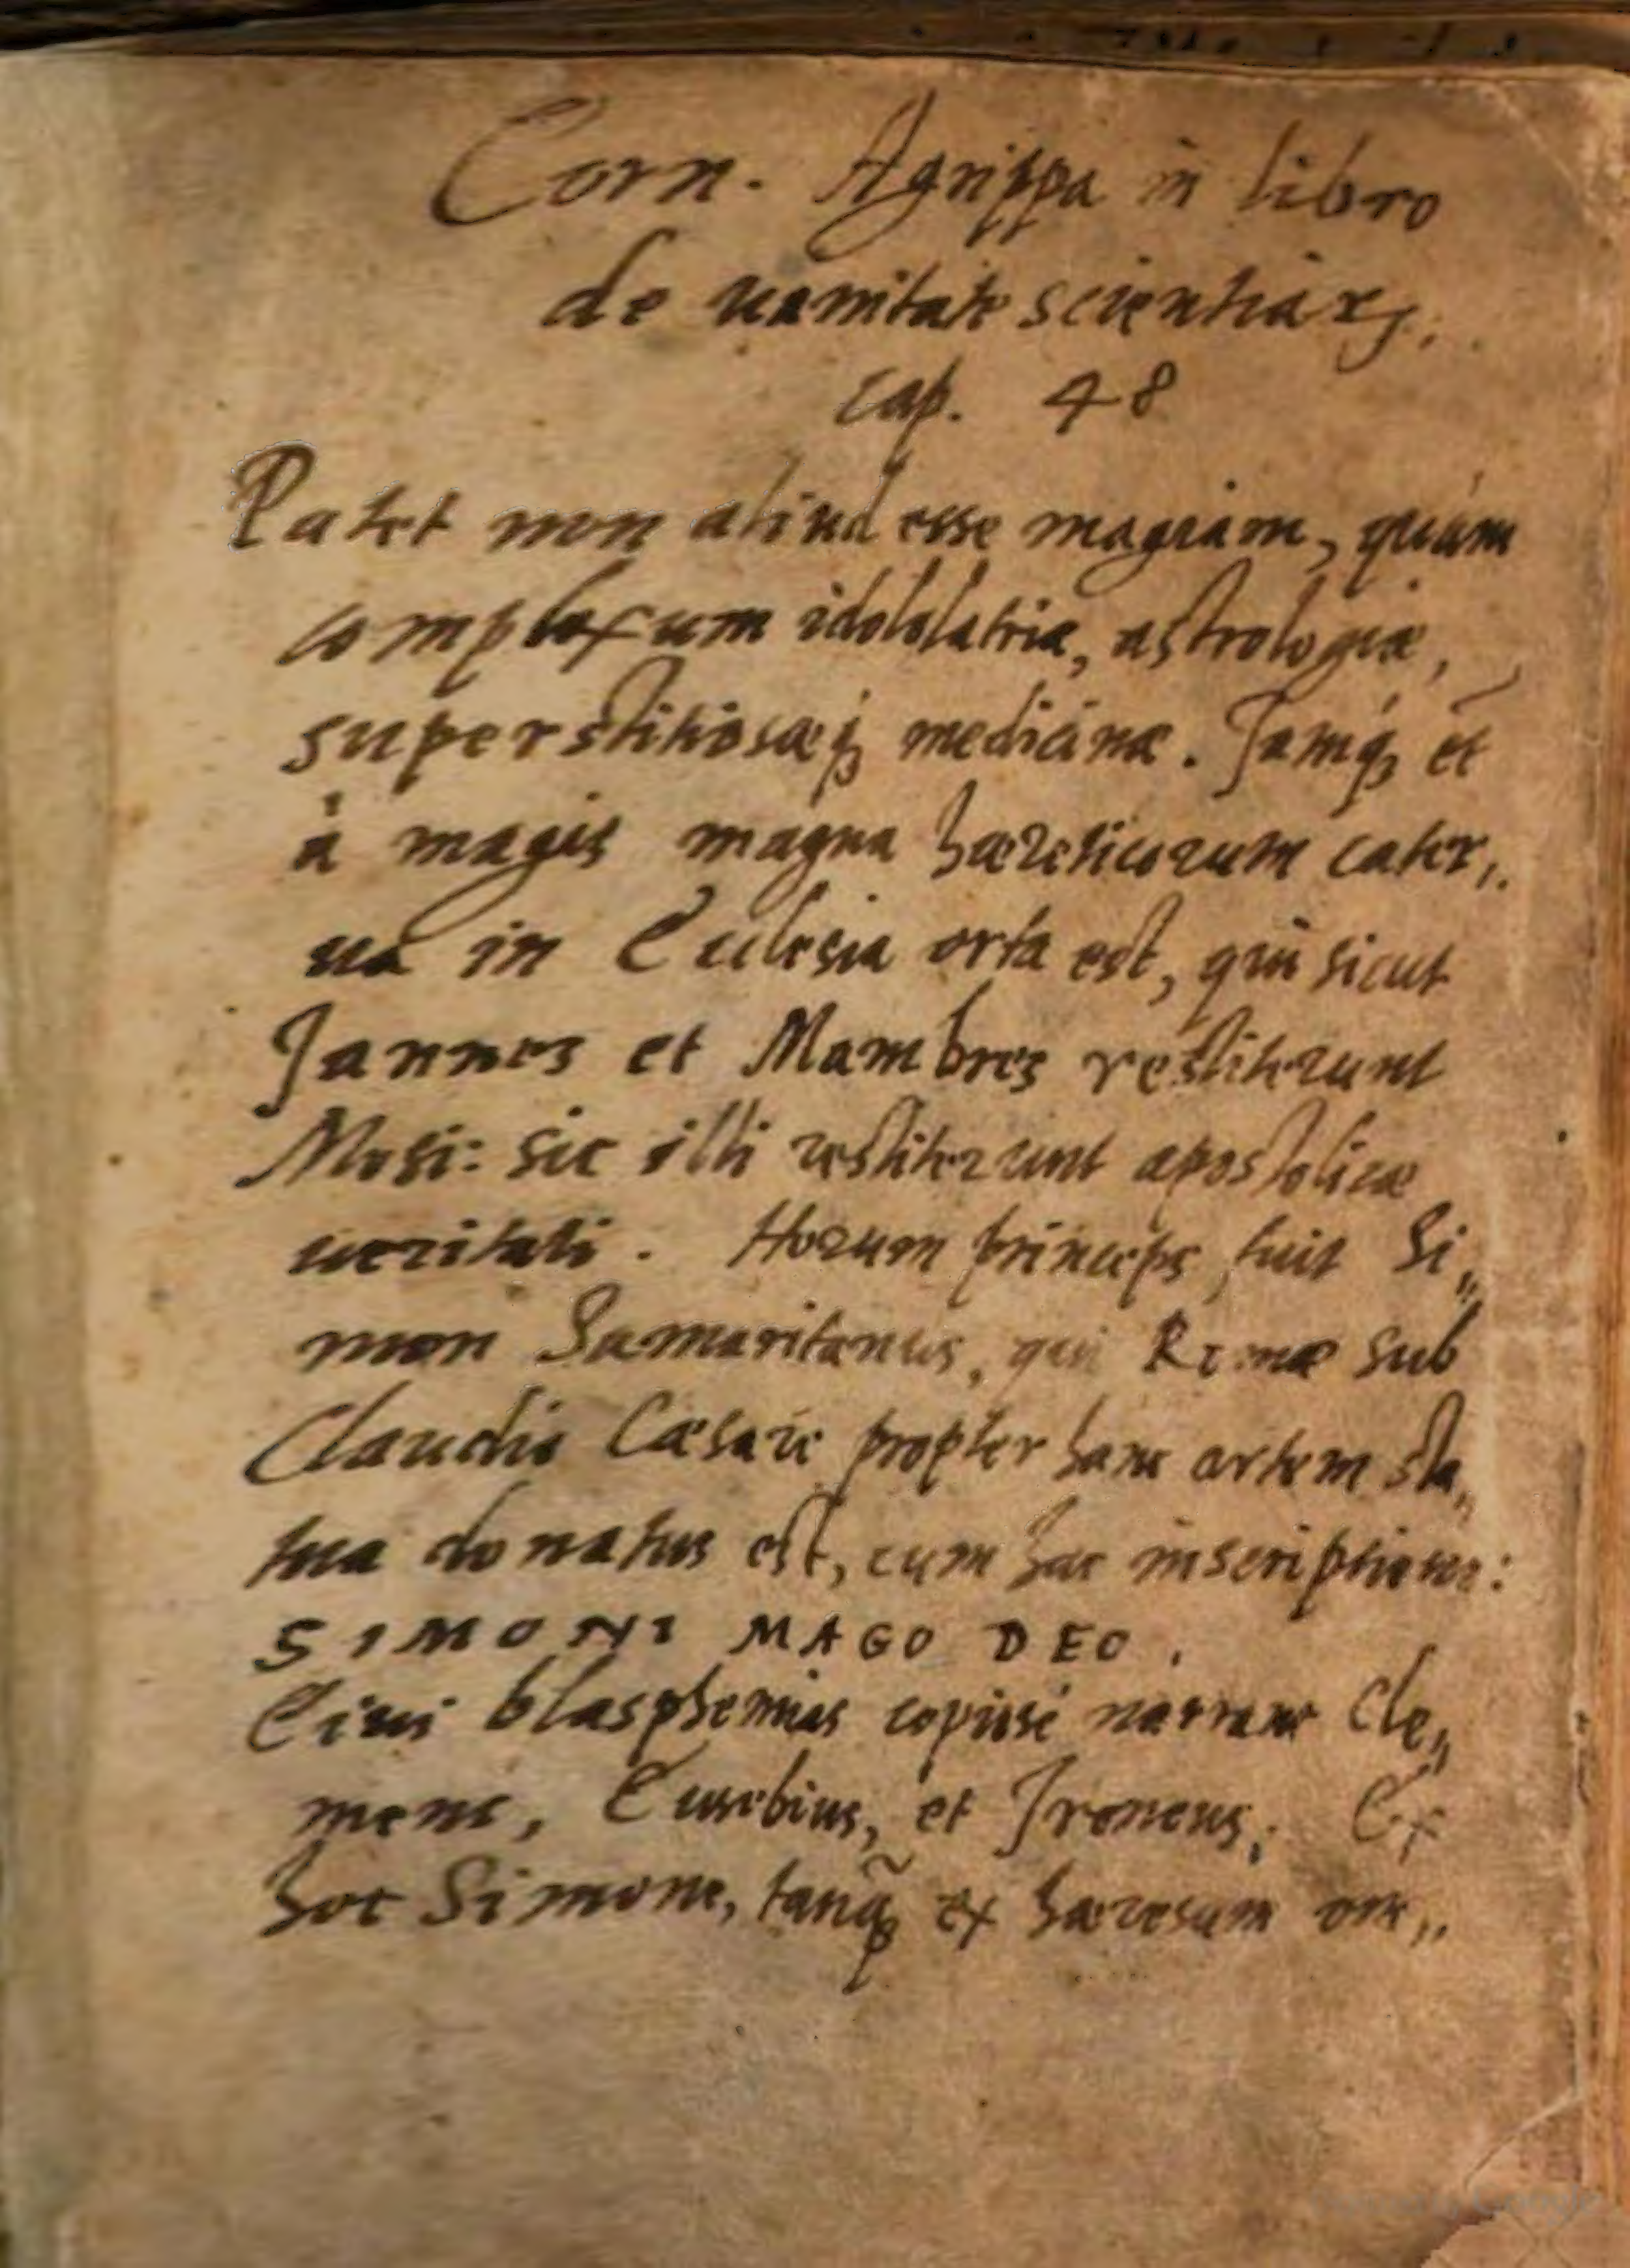 Corn. Agrippa in libro
de uanitate scientiarꝝ.
cap. 48
Patet non aliud esse magiam, quàm
complexum idololatriæ, astrologiæ,
superstitiosæq́ꝫ medicinæ. Jamq́ꝫ et
à magis magna hæreticorum cater„
ua in Ecclesia orta est, qui sicut
Jannes et Mambres restiterunt
Mosi: sic illi restiterunt apostolicæ
ueritati. Horum princeps fuit Si„
mon Samaritanus, qui Romæ sub
Claudio Cæsare propter hanc artem sta„
tua donatus est, cum hac inscriptione:
SIMONI MAGO DEO.
Eius blasphemias copiosè narrant Cle„
mens, Eusebius, et Ireneus. Ex
hoc Simone, tanq̃ꝫ ex hæresum om„